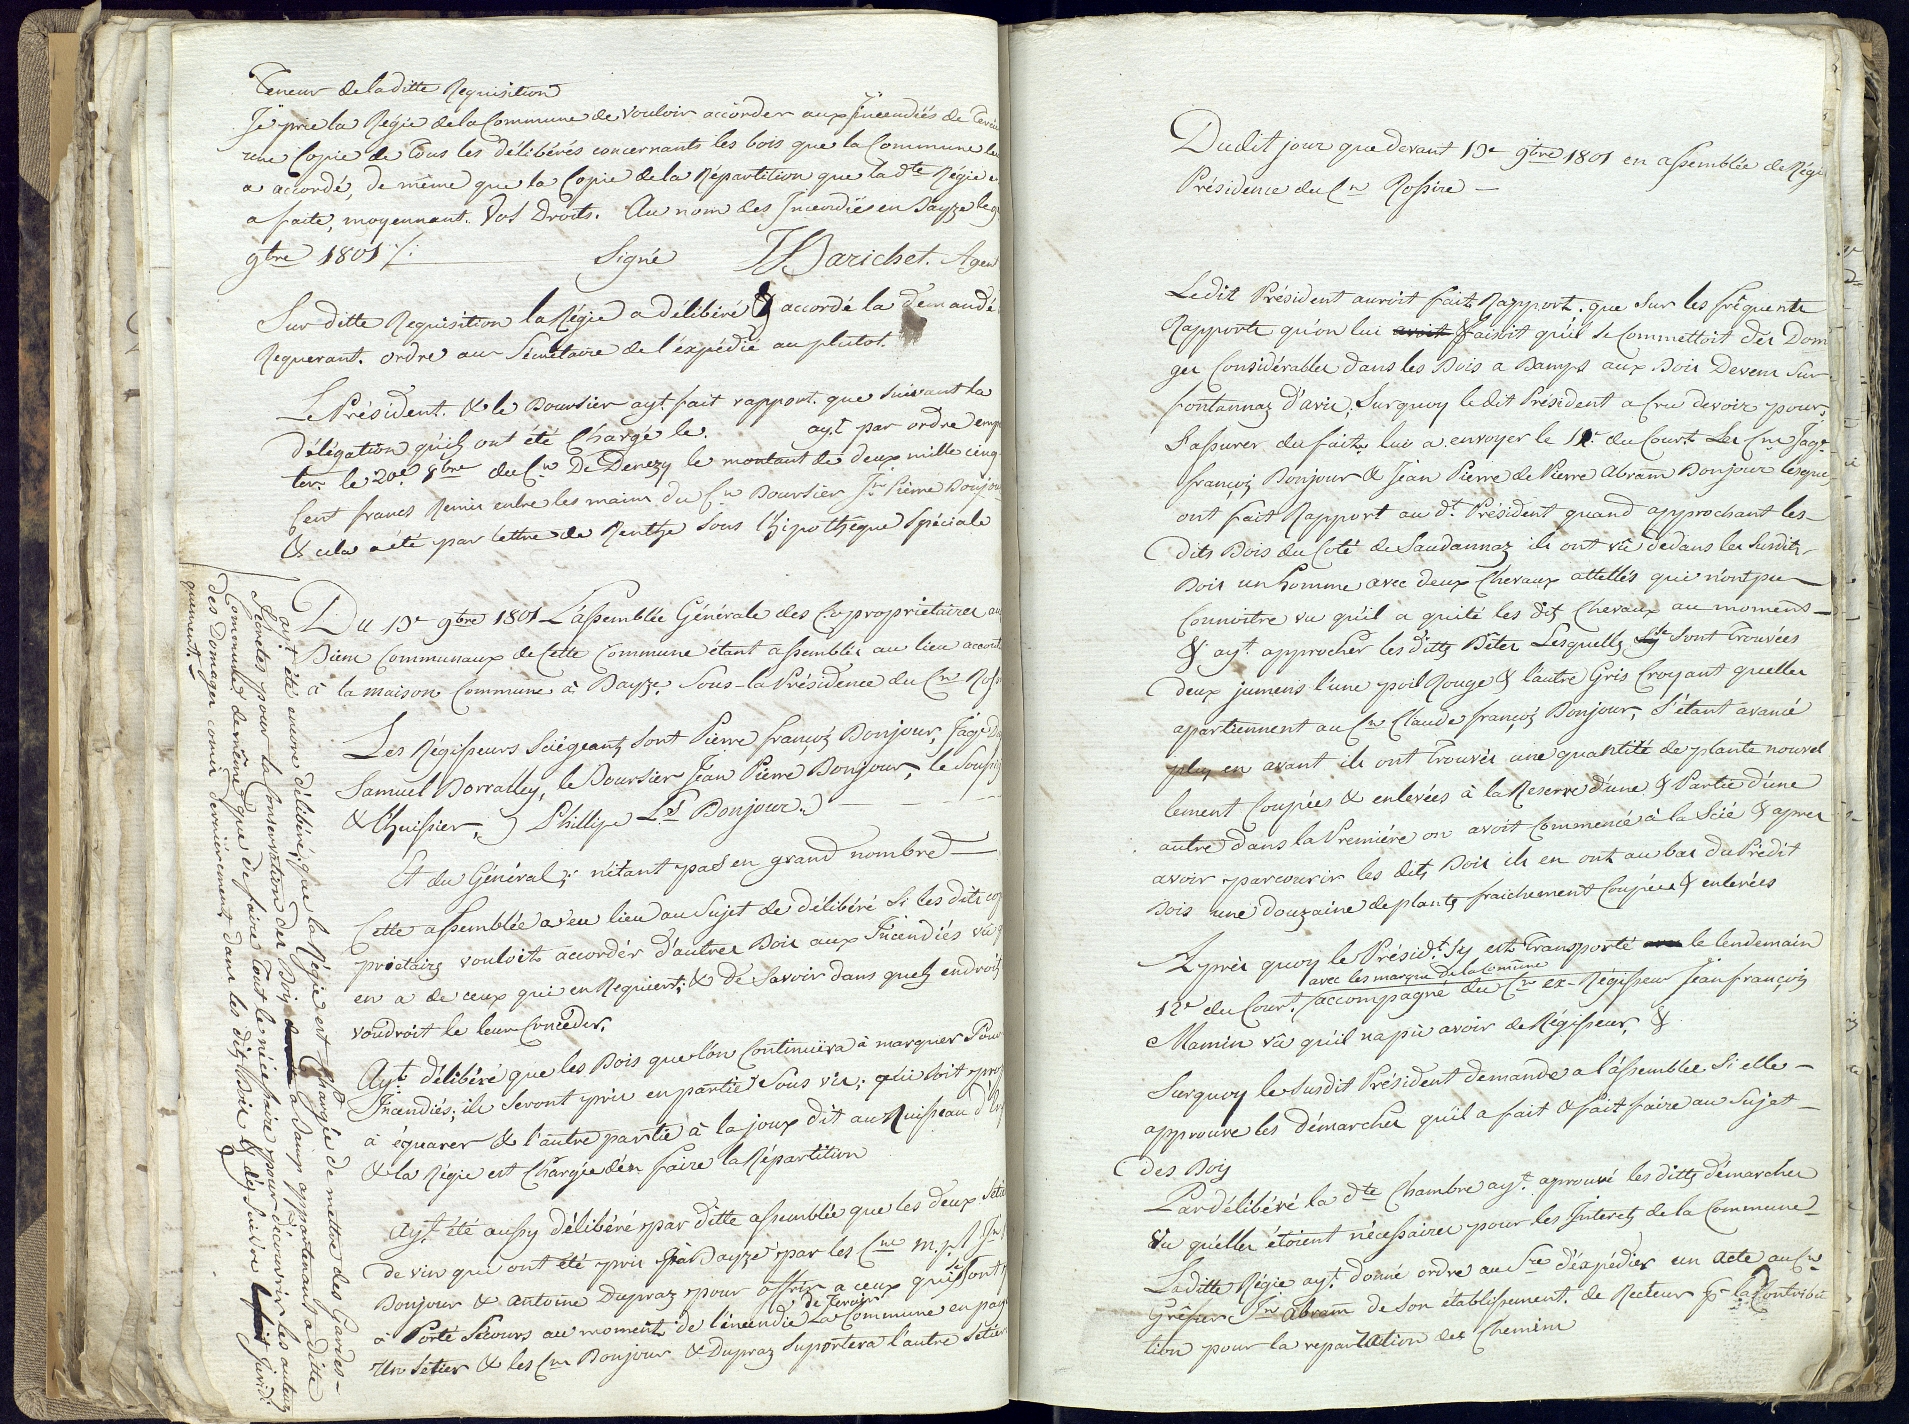 Teneur de la ditte Requisition
Je prie la Régie de la Commune de vouloir accorder aux Jncendiés de
une Copie de tous les délibérés concernants les bois que la Commune le
a accordé, de même que la Copie de la Répartition que la dte Régie
a faite, moyennant. Vos Droits. Au nom des Jncendiés en Bayze le
9bre 1801 /: Signé Barichet. Agen
Sur ditte Requisition la Régie a délibéré & accordé la demande
Requerant. ordre au Sécretaire de l'éxpédié au plutot.
Le Président. & le Boursier ayt. fait rapport. que suivant la
délégation qu'ils ont été Chargé le. ayt. par ordre emp
ter. le 20e. 8bre du Cn De Denezy le montant de deux mille cinq
Cent francs Remis entre les mains du Cn Boursier Jn Pierre Bonjou
& cela a été par lettre de Rentze sous l'hipothèque Spéciale
Du 13e 9bre 1801 L'assemblée Générale des Copropriétaires au
Biens Communaux de Cette Commune étant assemblés au lieu accout
à la maison Commune à Bayze. Sous la Présidence du Cn Ross
Les Régisseurs Siégeants sont Pierre françois Bonjour, Jaqs
Samuel Borralley, le Boursier Jean Pierre Bonjour, le Soussig
& L'huissier, Phillipe Ls Bonjour.
Et du Général; n'étant pas en grand nombre
Cette assemblée a eu lieu au Sujet de délibéré Si les dits co
priétairs vouloit accordér d'autres Bois aux Jncendiés vu q
en a de ceux qui en Requiert; & de Savoir dans quels endroit
voudroit le leur Conceder.
Ayt. délibéré que les Bois que l'on Continuëra à marquer Pour
Jncendiés; ils Seront pris en partie Sous vie; qui soit
à équarer & l'autre partie à la joux dit au Ruisseau
& la Régie est Chargée d'en faire la Répartition
Ayt. été aussy délibéré par ditte assemblée que les deux Sétie
de vin qui ont été pris à Bayze par les Cns
Bonjour & Antoine Dupraz pour offrir a ceux qui se sont
à Porté Sécours au moment de l'incendie de Teroir La Commune en paye
un Setier & les Cns Bonjour & Dupraz suportera l'autre Sétier
ayt. été encore délibéré; que la Régie est Chargée de mettre des Gardes-
Secrettes pour la Conservation des Bois a Bamp appartenants a ditte
Commune; de même que de faire Tout le nécéssaire pour découvrir les auteurs
des Domages comis dernièrement dans les dits Bois & dés suivre juridi
quement.
Dudit jour que devant 13e 9bre 1801 en assemblée de Régi
Présidence du Cn Rossire
Ledit Président auroit fait Rapport; que Sur les fréquents
Rapports qu'on lui avoit faisoit qu'il se Commettoit des Dom
ges Considérables dans les Bois a Bamps aux Bois Devens Sur
fontannaz d'avis; Surquoy ledit Président a Cru devoir pour
S'assurer du fait lui a envoyer le 11e du Court. Les Cns Jaqs
françois Bonjour & Jean Pierre de Pierre Abram Bonjour lesque
ont fait Rapport au dt. Président quand approchant les
dits Bois du Coté de Saudannaz ils ont vû dedans les Susdits
Bois un homme avec deux Chevaux attellés qui n'ont pu
Connoitre vu qu'il a quité les dits Chevaux au moment
& ayt. approcher les dittes Bêtes Lesquelles Sont Trouvées
deux jumens l'une poil Rouge & l'autre Gris Croyant quelles
apartiennent au Cn Claude françois Bonjour, S'étant avancé
plus en avant ils ont Trouvés une quantité de plante nouvel
lement Coupées & enlevées à la Reserve d'une & Partie d'une
autre dans la Première on avoit Commencé à la Scié & apres
avoir parcourir les dits Bois ils en ont au bas du Prédit
Bois une douzaine de plants fraichement Coupées & enlevées
Après quoy le Présidt. S'y est Transporté avec le lendemain
avec les marque de la Comune
12e du Court. accompagné du Cn ex-Régisseur Jean françois
Mamin vû qu'il n'a pû avoir de Régisseur, &
Surquoy le Susdit Président demande a l'assemblée Si elle
approuve les démarches qu'il a fait & fait faire au Sujet
des Bois
Par délibéré la dte Chambre ayt. aprouvé les dittes démarches
Vu quelles étoient nécéssaires pour les Jnterets de la Commune
Laditte Régie ayt. donné ordre au Sre d'éxpédier un Acte au Cn
Gréfier Jn Abram de Son établissement de Recteur Pr la Contribu
tion pour la reparation des Chemins